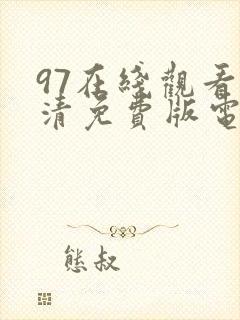 97在綫觀看
清免費版電
熊叔